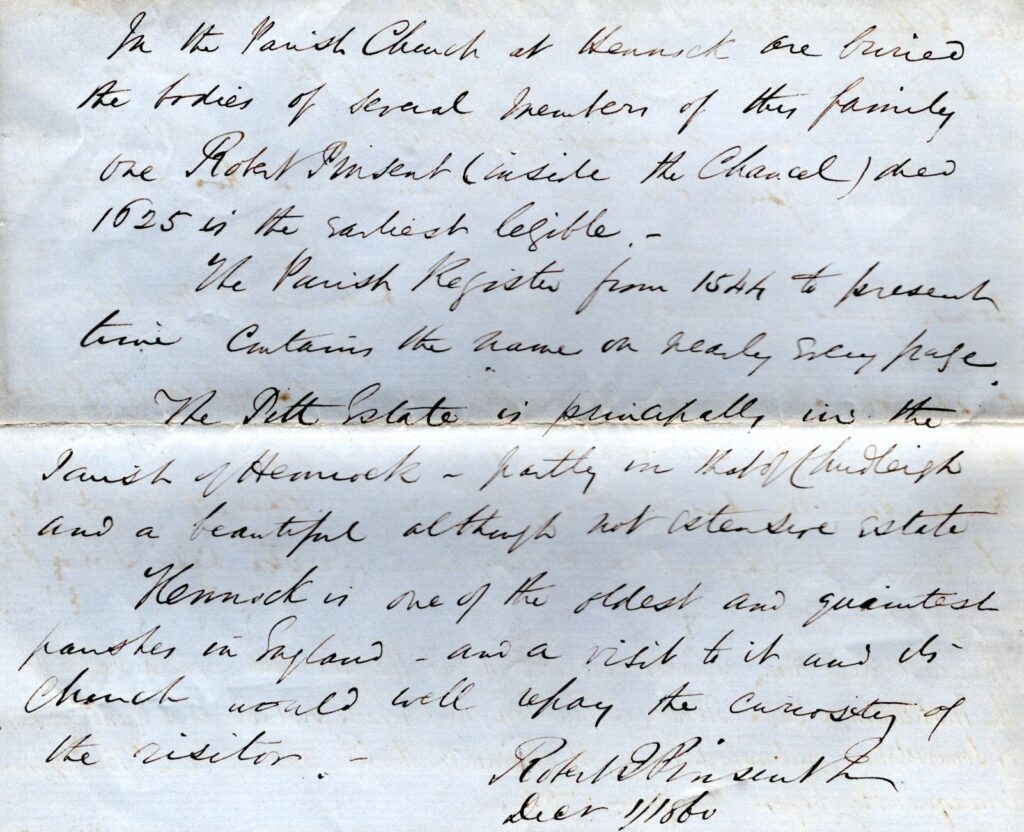 In the Parish Church at Hennock are buried
the bodies of several members of this family
one Robert Pinsent (inside the Chancel) died
1625 is the earliest legible. -
The Parish Register from 1544 to present
time contains the name on nearly every page.
The Pitt Estate is principally in the
Parish of Hennock - partly in that of Chudleigh
and a beautiful although not extensive estate
Hennock is one of the oldest and quaintest
parishes in England - and a visit to it and its
Church would well repay the curiosity of
the visitor. -
Robert J Pinsent Jr
Decr 1/1860